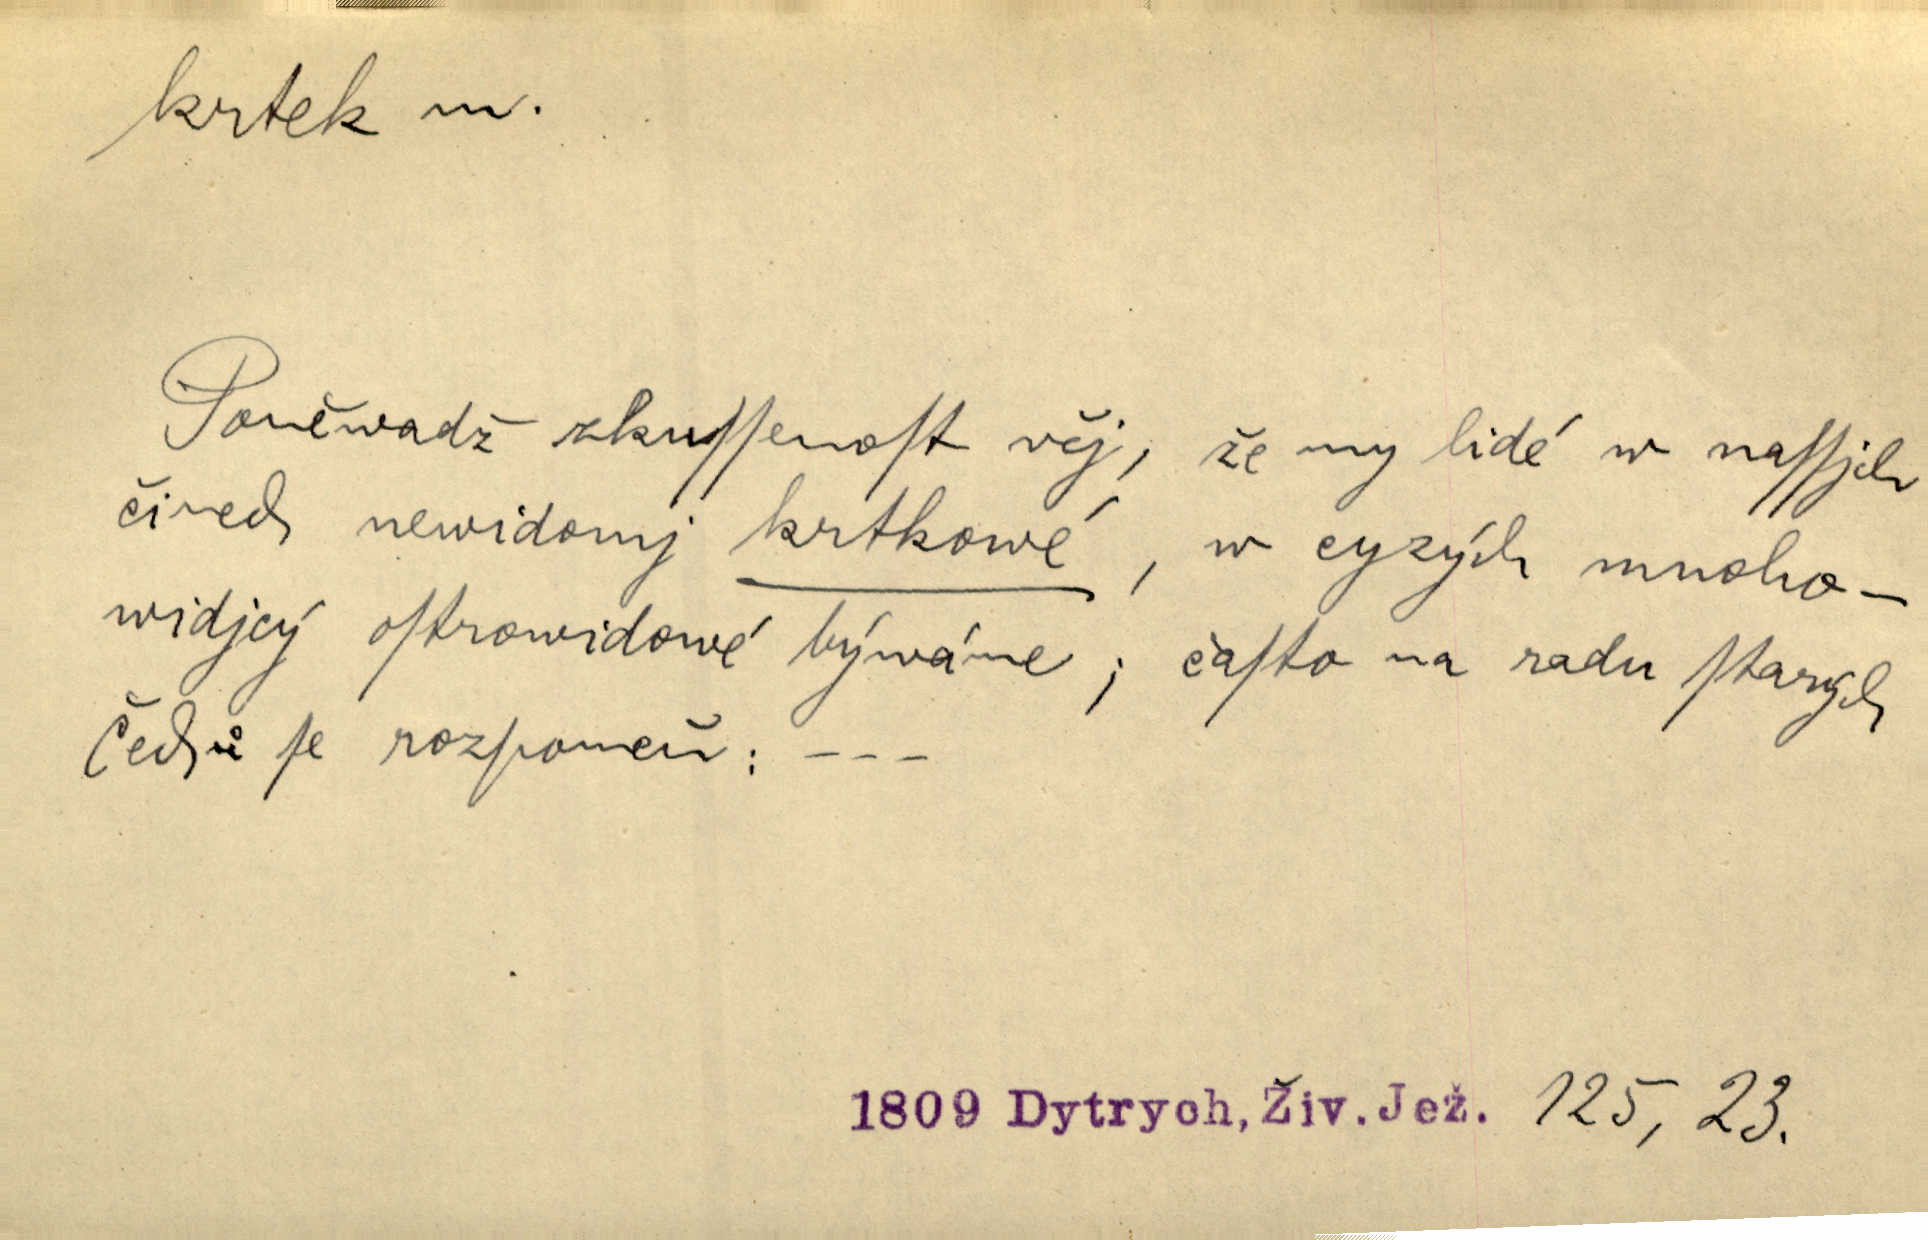 krtek m.
Poněwadž zkuſſenoſt věj, že my lidé w naſſjch
činech newidomj krtkowé, w cyzých mnoho-
widjcý oſtrowidowé býwáme; čaſto na radu ſtarých
Čechů ſe rozpomeň: ---
1809 Dytrych, Živ. Jež. 125, 23.